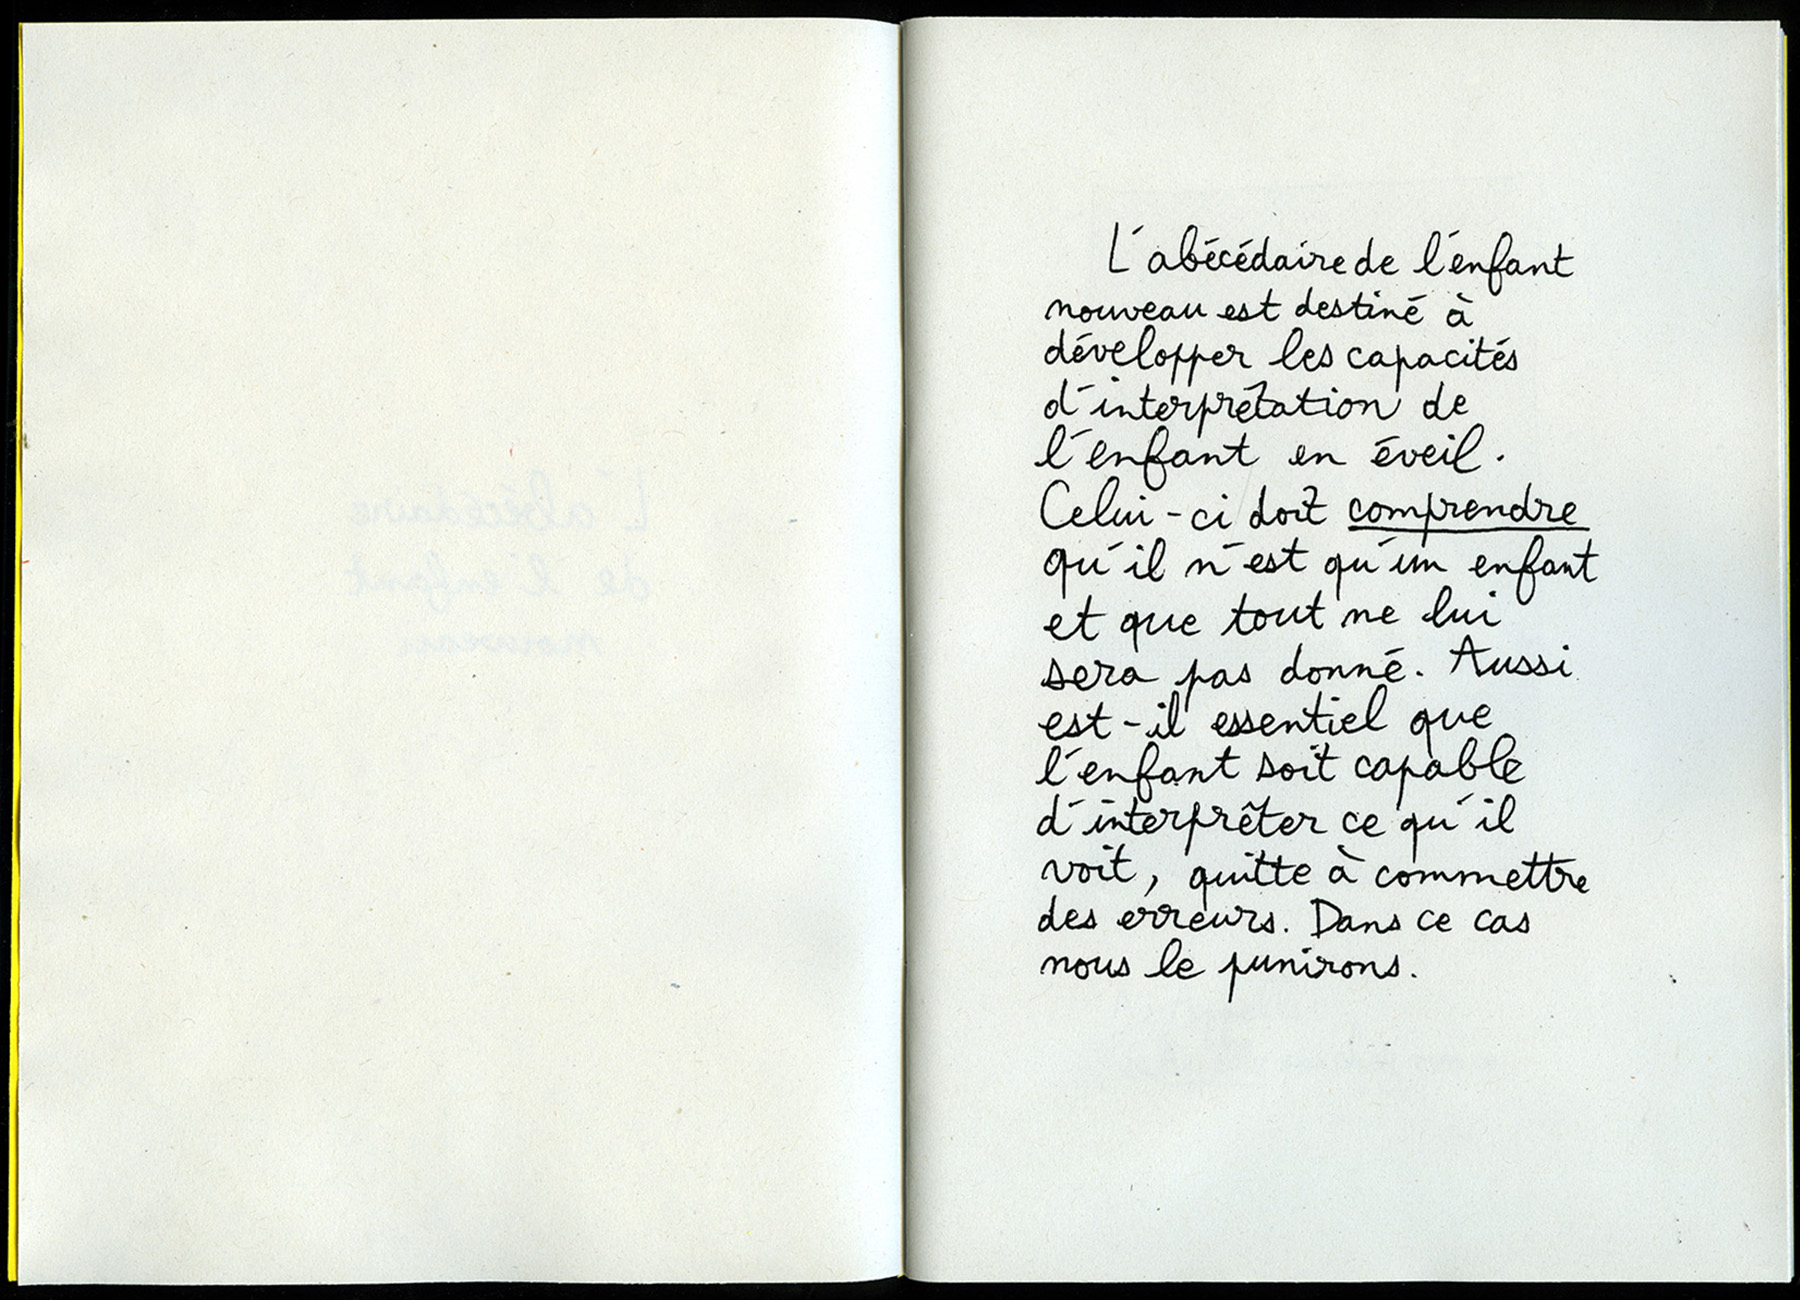 L'abécédaire
de l'enfant
nouveau
L'abécédaire de l'enfant
nouveau est destiné à
développer les capacités
d'interprétation de
l'enfant en éveil.
Celui-ci doit comprendre
qu'il n'est qu'un enfant
et que tout ne lui
sera pas donné. Aussi
est-il essentiel que
l'enfant soit capable
d'interprêter ce qu'il
voit, quitte à commettre
des erreurs. Dans ce cas
nous le punirons.